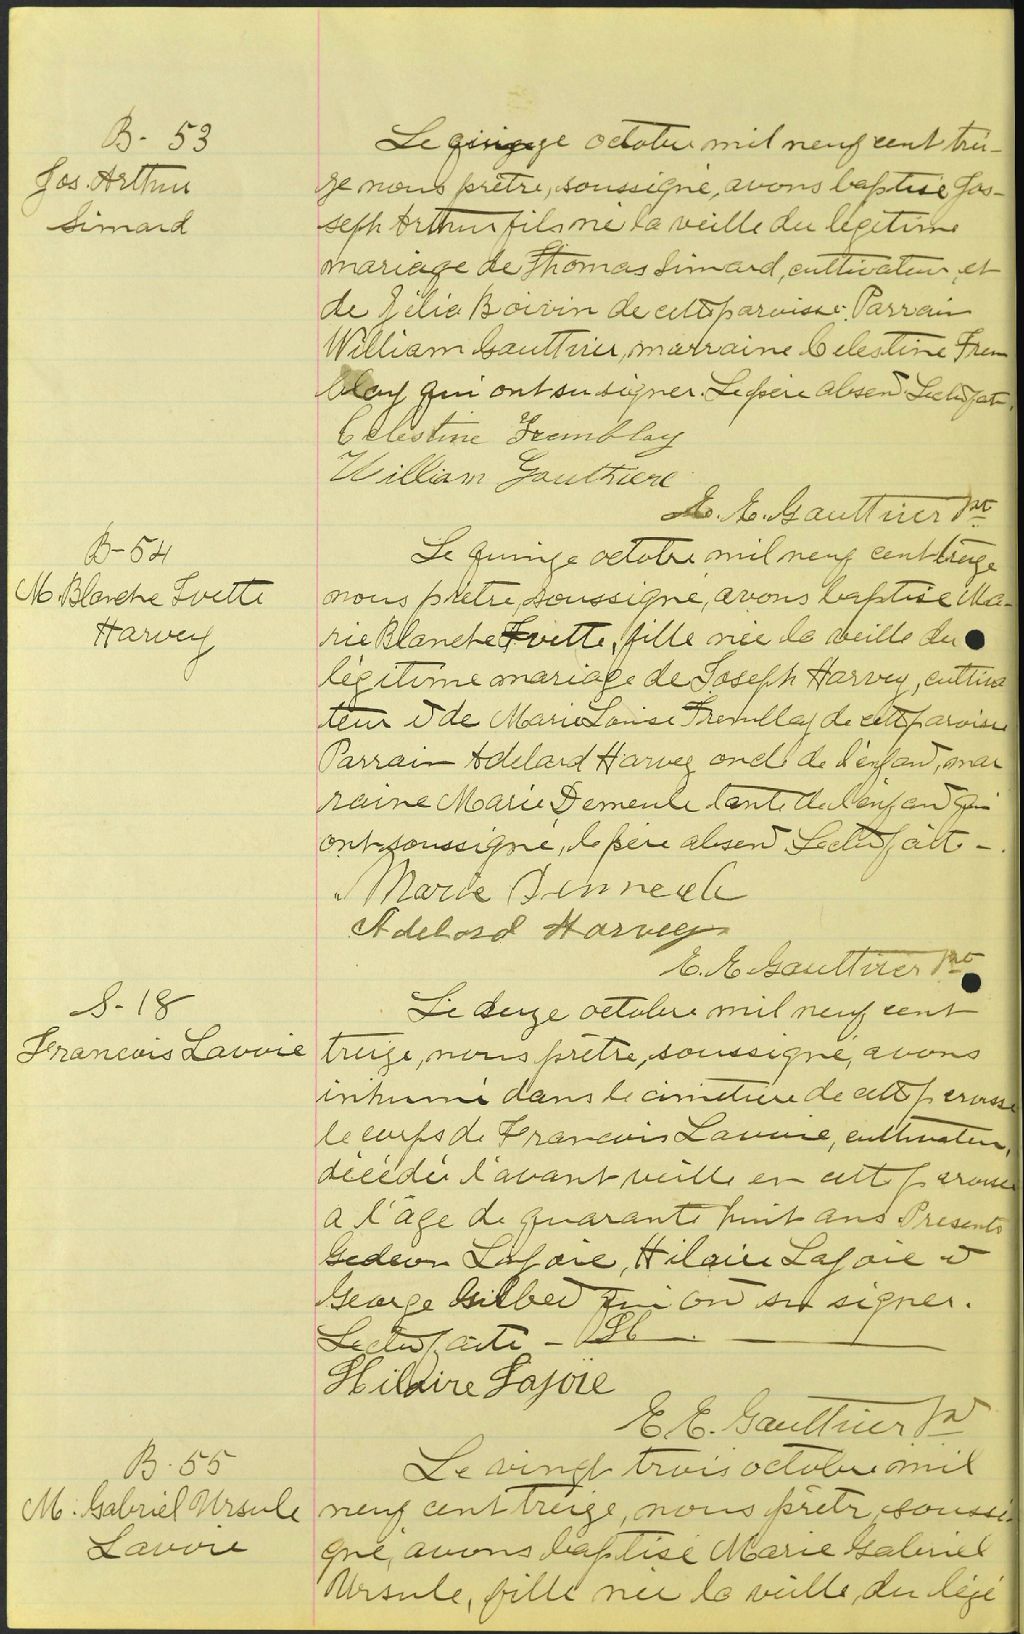 B- 53
Jos. Arthur
Simard
Le quinze octobre mil neuf cent trei-
ze nous prêtre, soussigné, avons baptisé Jos-
seph Arthur fils né la veille du légitime
mariage de Thomas Simard, cultivateur, et
de Zélia Boivin de cette paroisse. Parrain
William Gauthier, marraine Celestine Trem
blay qui ont su signer. Le père absent. Lecture faite.
Celestine Tremblay
William Gauthiere
E. E. Gauthier Ptre
B-54
M. Blanche Ivette
Harvey
Le quinze octobre mil neuf cent treize
nous prêtre, soussigné, avons baptisé Ma-
rie Blanche Ivette, fille née la veille du
légitime mariage de Joseph Harvey, cultiva
teur et de Marie Louise Tremblay de cette paroisse
Parrain Adelard Harvey oncle de l'enfant, mar
raine Marie Demeule tante de l'enfant qui
ont soussigné, le père absent. Lecture faite -
Marie
Adelard Harvey
E. E Gauthier Ptre
S- 18
Francois Lavoie
Le seize octobre mil neuf cent
treize, nous prêtre, soussigné, avons
inhumé dans le cimetière de cette paroisse
le corps de Francois Lavoie, cultivateur,
décédé l'avant veille en cette paroisse
a l'âge de quarante huit ans Présents
Gedeon Lajoie, Hilaire Lajoie et
George Gilbert qui ont su signer.
Lecture faite -
Hilaire Lajoie
E E. Gauthier Ptre
B- 55
M. Gabriel Ursule
Lavoie
Le vingt trois octobre mil
neuf cent treize, nous prêtre, soussi-
gné, avons baptisé Marie Gabriel
Ursule, fille née la veille, du légi